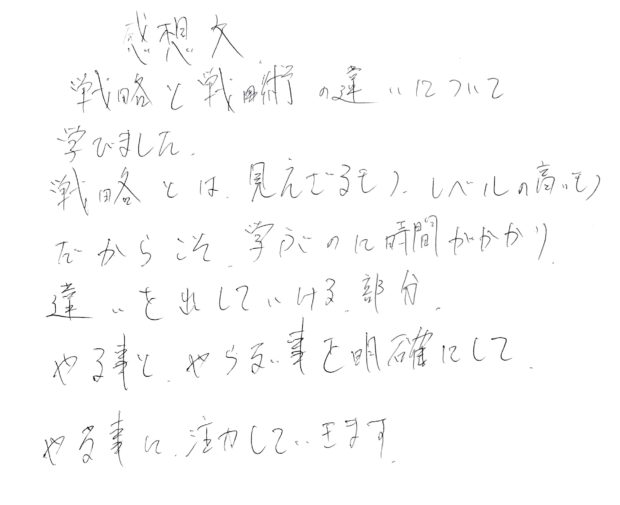 感想文
戦略と戦略術の違いについて
学びました。
戦略とは、見えざるもの、レベルの高いもの
だからこそ、学ぶのに時間がかかり
違いを出していける部分。
やる事と、やらない事を明確にして
やる事に、注力していきます。